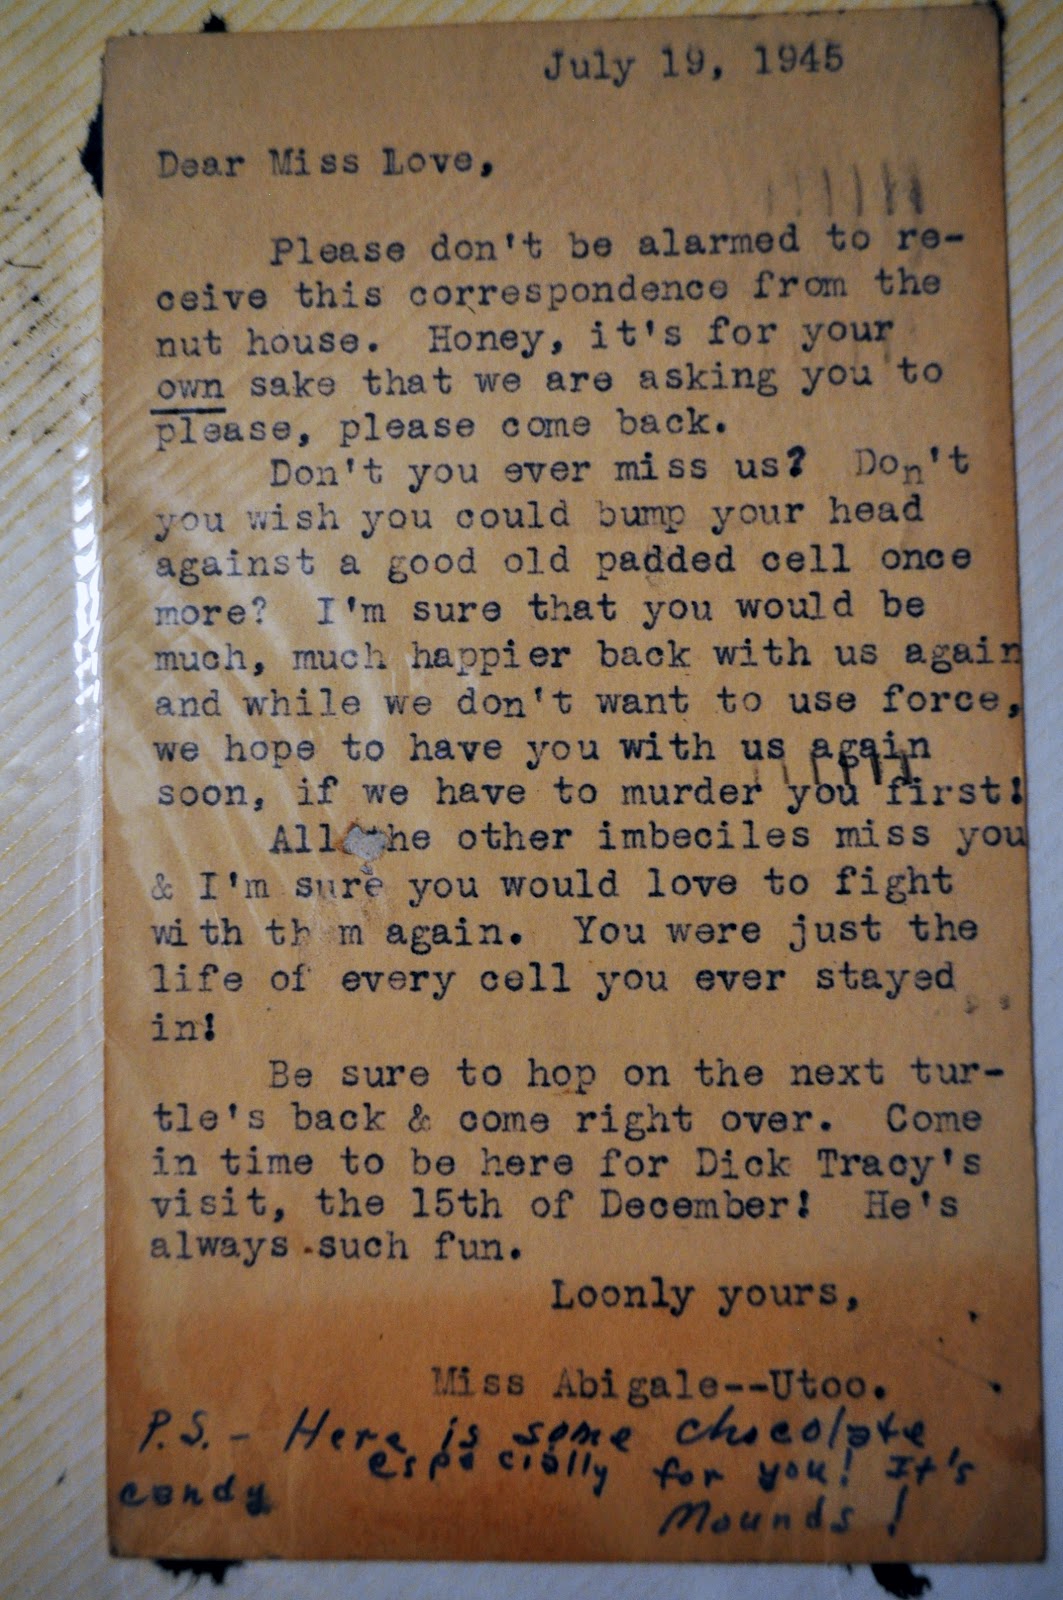 July 19, 1945
Dear Miss Love,
Please don't be alarmed to re-
ceive this correspondence from the
nut house. Honey, it's for your
own sake that we are asking you to
please, please come back.
Don't you ever miss us? Don't
you wish you could bump your head
against a good old padded cell once
more? I'm sure that you would be
much, much happier back with us again
and while we don't want to use force,
we hope to have you with us again
soon, if we have to murder you first!
All the other imbeciles miss you
& I'm sure you would love to fight
with th m again. You were just the
life of every cell you ever stayed
in!
Be sure to hop on the next tur-
tle's back & come right over. Come
in time to be here for Dick Tracy's
visit, the 15th of December! He's
always such fun.
Loonly yours,
Miss Abigale--Utoo.
P.S. - Here is some chocolate
candy especially for you! It's
Mounds!